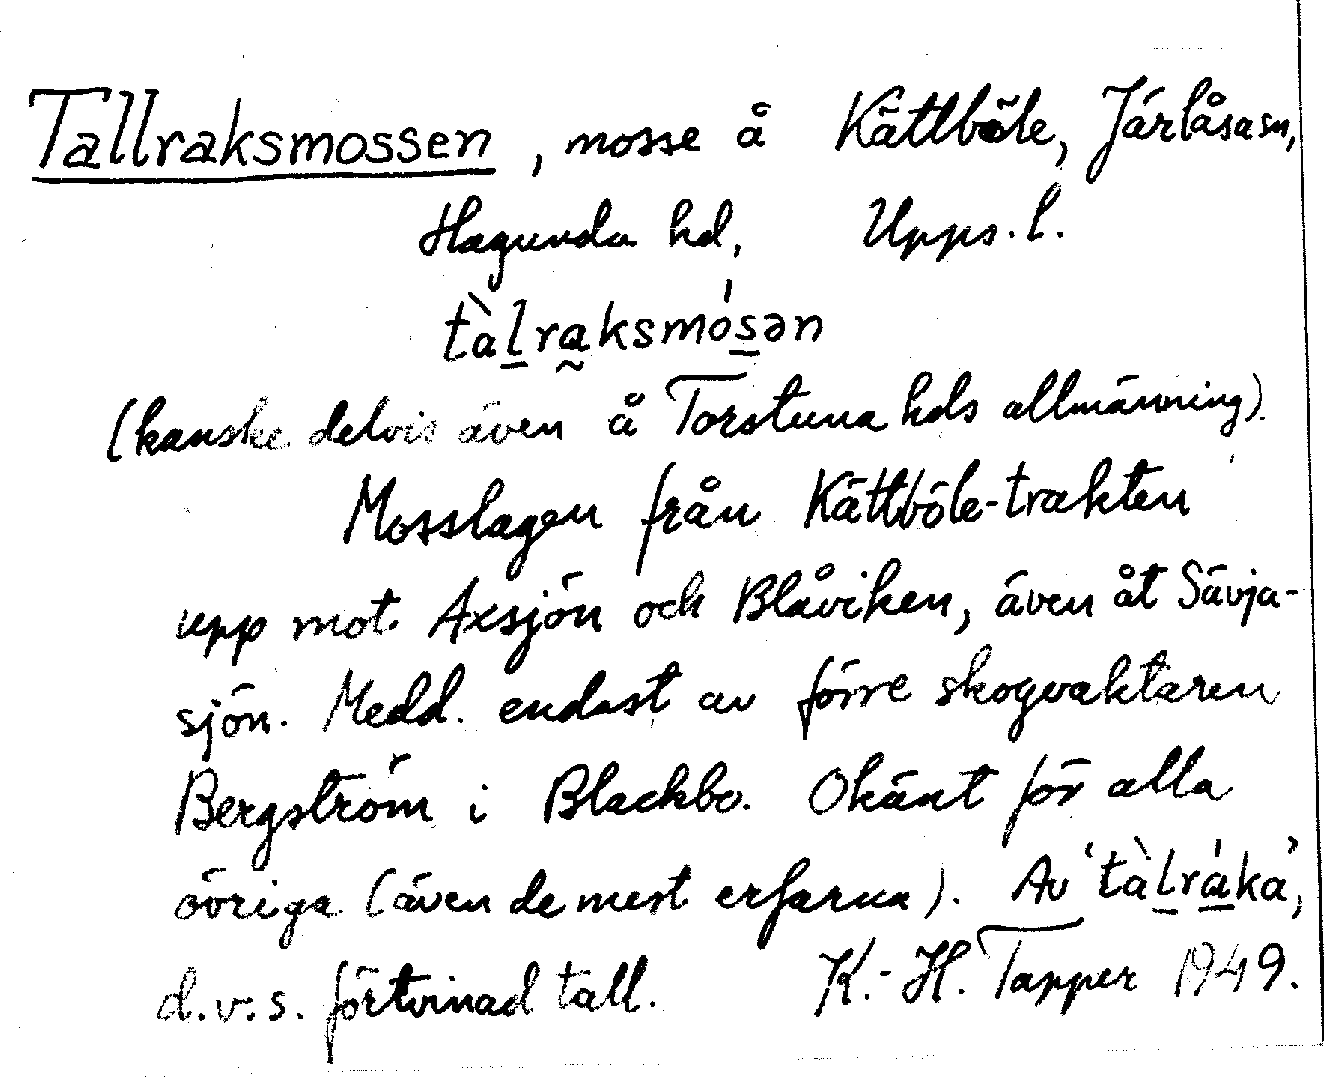 Tallraksmossen, mosse å Kättböle, Järlåsa sn,
Hagunda hd, Upps. l.
tàl̠ra̰ksmós̠ən
(kanske delvis även å Torstuna hds allmänning).
Mosslagen från Kättböle-trakten
upp mot Axsjön och Blåviken, även åt Sävja-
sjön. Medd. endast av förre skogvaktaren
Bergström i Blackbo. Okänt för alla
övriga (även de mest erfarna). Av 'tàl̠rá̠ka',
d.v.s. förtvinad tall. K.-H. Tapper 1949.